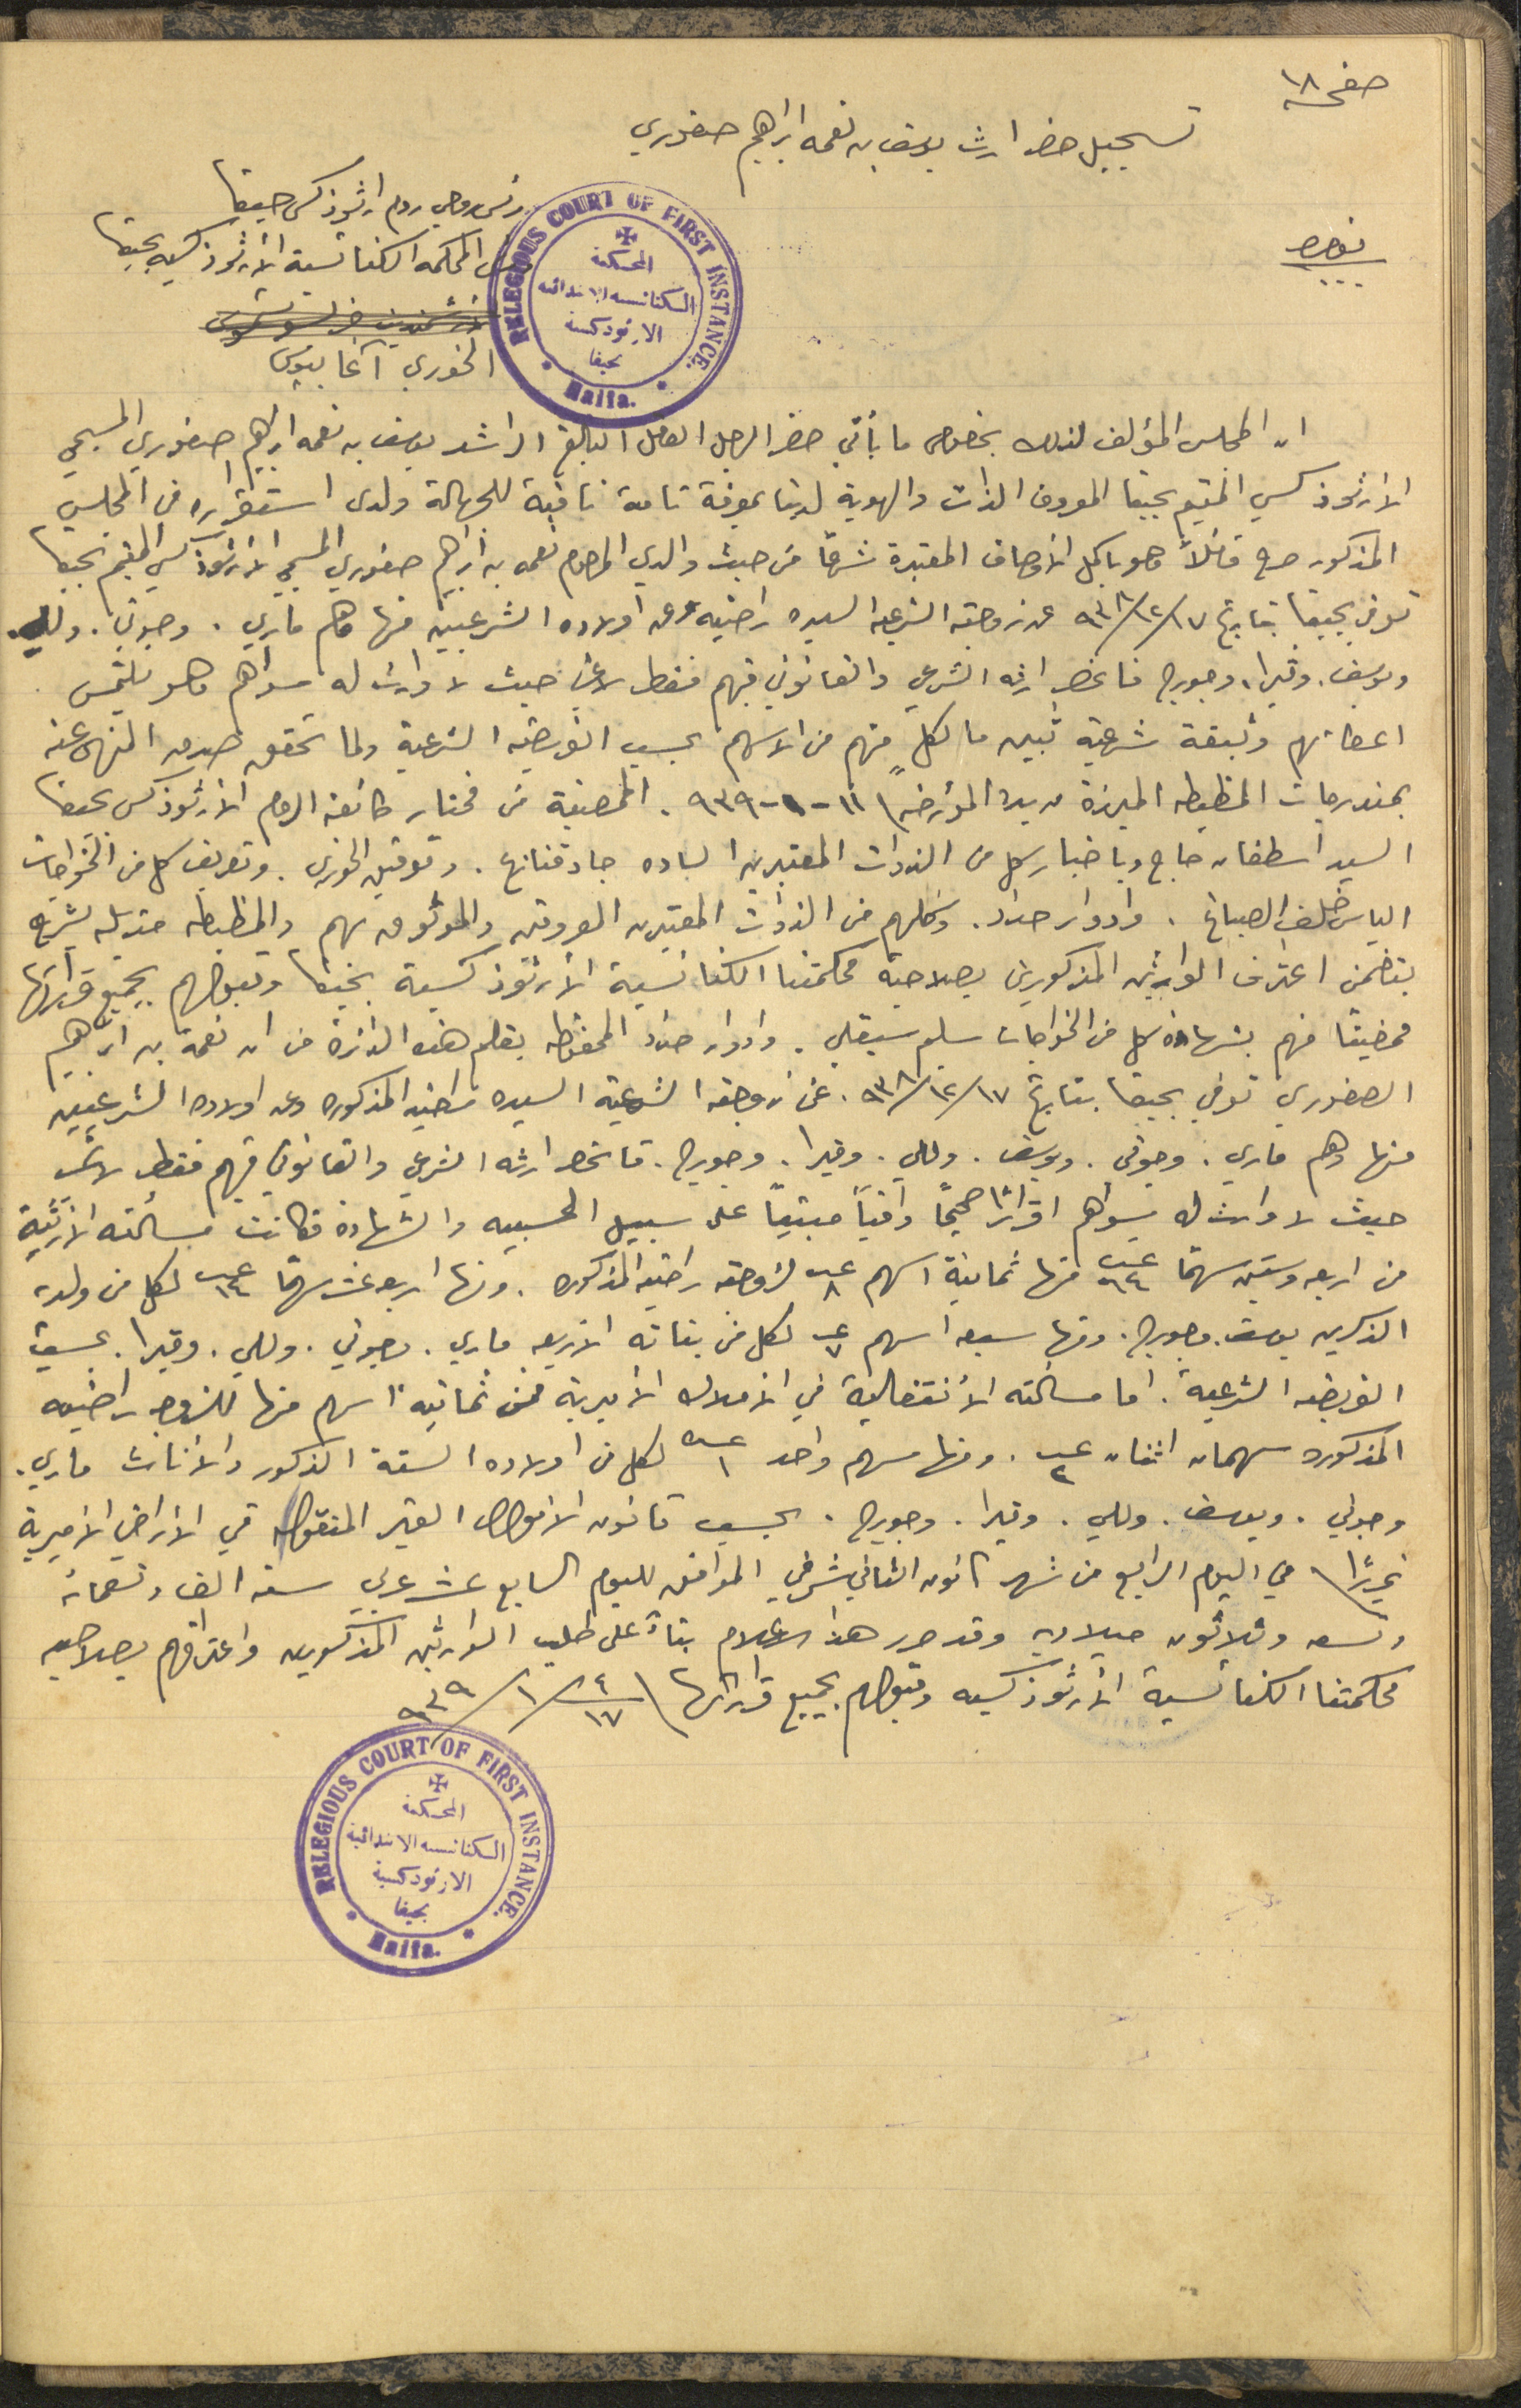 صفحة ١٨
تسجيل حصر ارث يوسف بن نعمه ابراهيم صفوري
نومرو
رئيس روحي روم ارثوذكس حيفا
رئيس المحكمه الكنائسية الأرثوذكسيه بحيفا
الخوري آغابيوس
RELEGIOUS COURT OF FIRST INSTANCE.
المحكمة
الكنائسيه الابتدائيه
الارثوذكسية
بحيفا
Haifa.
ان المجلس المؤلف لذلك بخصوص ما يأتي حضر الرجل العاقل البالغ الراشد يوسف بن نعمه ابراهيم صفوري المسيحي
الأرثوذكسي المقيم بحيفا المعروف الذات والهوية لدينا بمعرفة تامة نافية للجهالة ولدى استقراره في المجلس
المذكور صرح قائلاً وهو باكمل الأوصاف المعتبرة شرعًا من حيث والدي المرحوم نعمه بن ابراهيم صفوري المسيحي الأرثوذكسي المقيم بحيفا
توفي بحيفا بتاريخ ١٧/١٢/٩٣٨ عن زوجته الشرعيه السيده راضيه وعن اولاده الشرعيين منها وهم ماري . وجوني . وللي .
ويوسف . وڤيرا . وجورج فانحصر ارثه الشرعي والقانوني فيهم فقط لا غير حيث لا وارث له سواهم وهو يلتمس
اعطائهم وثيقة شرعية تبين ما لكلٍ منهم من الأسهم بحسب الفريضة الشرعية ولما تحقق صدق المنهى عنه
بمندرجات المظبطه المبرزة من يده المؤرخه \ ١١-١-٩٣٩ . الممضية من مختار طائفة الروم الأرثوذكس بحيفا
السيد اسطفان حاج وباخبار كل من الذوات المعتبرين الساده جاد قنازع . وتوفيق الخوري . وتعريف كل من الخواجات
الياس خلف الصباغ . وادوار حداد . وكلهم من الذوات المعتبرين المعروفين والموثوق بهم والمظبطه مذيله بشرح
يتضمن اعتراف الوارثين المذكورين بصلاحية محكمتنا الكنائسية الأرثوذكسية بحيفا وقبولهم بجميع قراراتها
ممضيًا منهم بشهادة كل من الخواجات سليم سيقلي . وادوار حداد المحفوظه بقلم هذه الدائرة من ان نعمة بن ابراهيم
الصفوري توفي بحيفا بتاريخ ١٧/١٢/٩٣٨ . عن زوجته الشرعية السيده راضيه المذكوره وعن اولاده الشرعيين
منها وهم ماري . وجوني . ويوسف . وللي . وڤيرا . وجورج . فانحصر ارثه الشرعي والقانوني فيهم فقط لا غير
حيث لا وارث له سواهم اقرارًا صحيحًا وافيًا مبنيًا على سبيل الحسبيه والشهادة فكانت مسألته الأرثية
من اربعه وستين سهمًا عدد ٦٤ منها ثمانية اسهم عدد ٨ لزوجته راضيه المذكوره . ومنها اربع عشر سهمًا عدد ١٤ لكل من ولديه
الذكرين يوسف وجورج . ومنها سبعه اسهم عدد ٧ لكل من بناته الاربعه ماري . وجوني . وللي . وڤيرا . بحسب
الفريضه الشرعية . اما مسألته الأنتقالية في الأملاك الأميرية فمن ثمانيه اسهم منها للزوجه راضيه
المذكوره سهمان اثنان عدد ٢ . ومنها سهم واحد عدد ١ لكل من اولاده الستة الذكور والأناث ماري .
وجوني . ويوسف . وللي . وڤيرا . وجورج . بحسب قانون الأموال الغير المنقوله في الأراضي الأميرية
تحريرًا \ في اليوم الرابع من شهر كانون الثاني شرقي الموافق لليوم السابع عشر غربي سنة الف وتسعمائة
وتسعه وثلاثون ميلاديه وقد حرر هذا الاعلام بناءً على طلب الوارثين المذكورين واعترافهم بصلاحيه
محكمتنا الكنائسية الأرثوذكسيه وقبولهم بجميع قراراتها \ ٤/١٧ / ١ / ٩٣٩
RELEGIOUS COURT OF FIRST INSTANCE.
المحكمة
الكنائسيه الابتدائية
الارثوذكسية
بحيفا
Haifa.